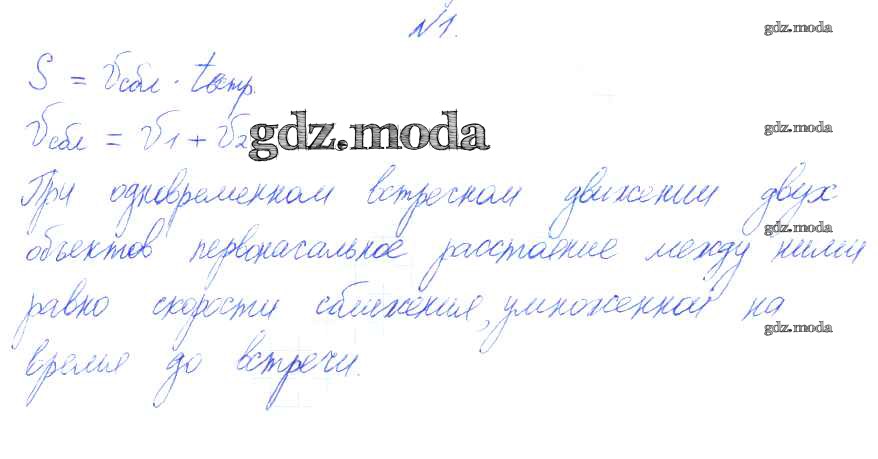 №1.
gdz.moda
S = Vсбл · tвстр.
Vсбл = V1 + V2
gdz.moda
gdz.moda
При одновременном встречном движении двух
gdz.moda
объектов первоначальное расстояние между ними
равно скорости сближения, умноженной на
gdz.moda
время до встречи.